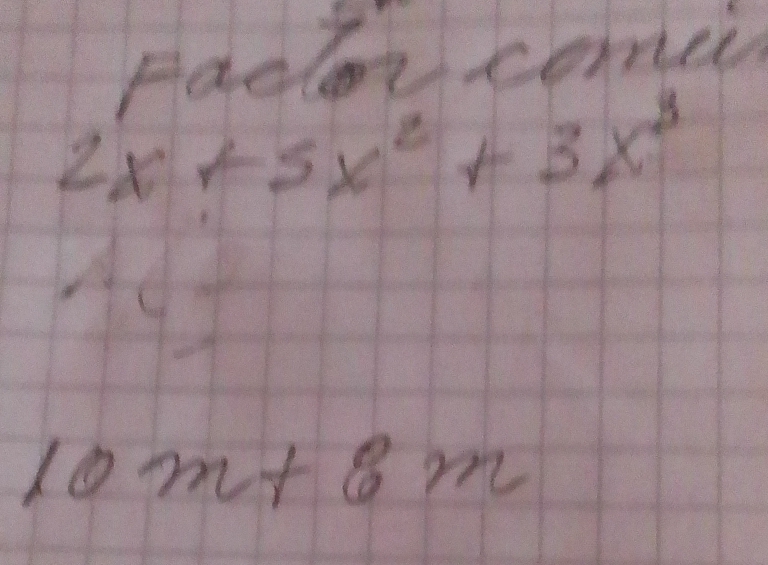 Factor común
2x + 5x² + 3x³
10 m + 8 m